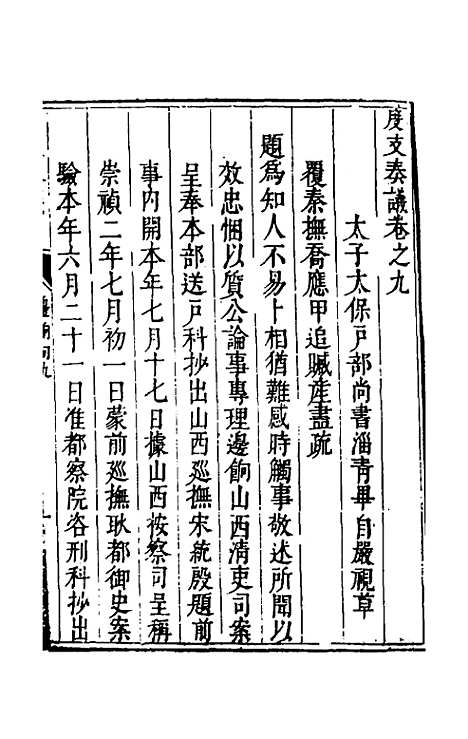 度支奏議卷之九
太子太保戶部尚書淄青畢自嚴視草
覆秦撫喬應甲追贓產盡疏
題為知人不易卜相猶難感時觸事敬述所聞以
效忠悃以質公論事專理邊餉山西清吏司案
呈奉本部送戶科抄出山西廵撫宋統殷題前
事內開本年七月十七日據山西按察司呈稱
崇禎二年七月初一日蒙前廵撫耿都御史案
驗本年六月二十一日准都察院咨刑科抄出
邊餉司九